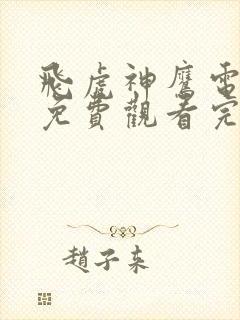 飛虎神鷹電
免費觀看完
趙子來